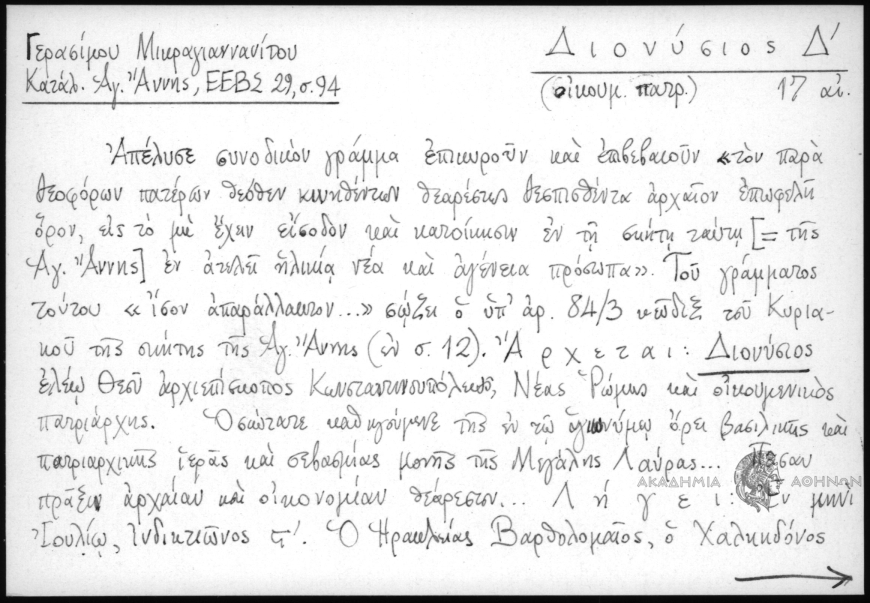 Γερασίμου Μικραγιαννανίτου
Κατάλ. Ἁγ. Ἄννης, ΕΕΒΣ 29, σ. 94
Διονύσιος Δ'
(οἰκουμ. πατρ.) 17 αἰ.
Ἀπέλυσε συνοδικὸν γράμμα ἐπικυροῦν καὶ ἐπιβεβαιοῦν «τὸν παρὰ
θεοφόρων πατέρων θεόθεν κινηθέντων θεαρέστως θεσπισθέντα ἀρχαῖον ἐπωφελῆ
ὅρον, εἰς τὸ μὴ ἔχειν εἴσοδον καὶ κατοίκησιν ἐν τῇ σκήτῃ ταύτῃ [= τῆς
Ἁγ. Ἄννης] ἐν ἀτελεῖ ἡλικίᾳ νέα καὶ ἀγένεια πρόσωπα». Τοῦ γράμματος
τούτου «ἴσον ἀπαράλλακτον...» σῴζει ὁ ὑπ' ἀρ. 84/3 κῶδιξ τοῦ Κυρια-
κοῦ τῆς σκήτης τῆς Ἁγ. Ἄννης (ἐν σ. 12). Ἄρχεται: Διονύσιος
ἐλέῳ Θεοῦ ἀρχιεπίσκοπος Κωνσταντινουπόλεως, Νέας Ῥώμης καὶ οἰκουμενικὸς
πατριάρχης. Ὁσιώτατε καθηγούμενε τῆς ἐν τῷ ἁγιωνύμῳ ὄρει βασιλικῆς καὶ
πατριαρχικῆς ἱερᾶς καὶ σεβασμίας μονῆς τῆς Μεγάλης Λαύρας... Πᾶσαν
πρᾶξιν ἀρχαίαν καὶ οἰκονομίαν θεάρεστον... Λήγει: Ἐν μηνὶ
Ἰουλίῳ, Ἰνδικτιῶνος ϛ'. Ὁ Ἡρακλείας Βαρθολομαῖος, ὁ Χαλκηδόνος
ΑΚΑΔΗΜΙΑ ΑΘΗΝΩΝ